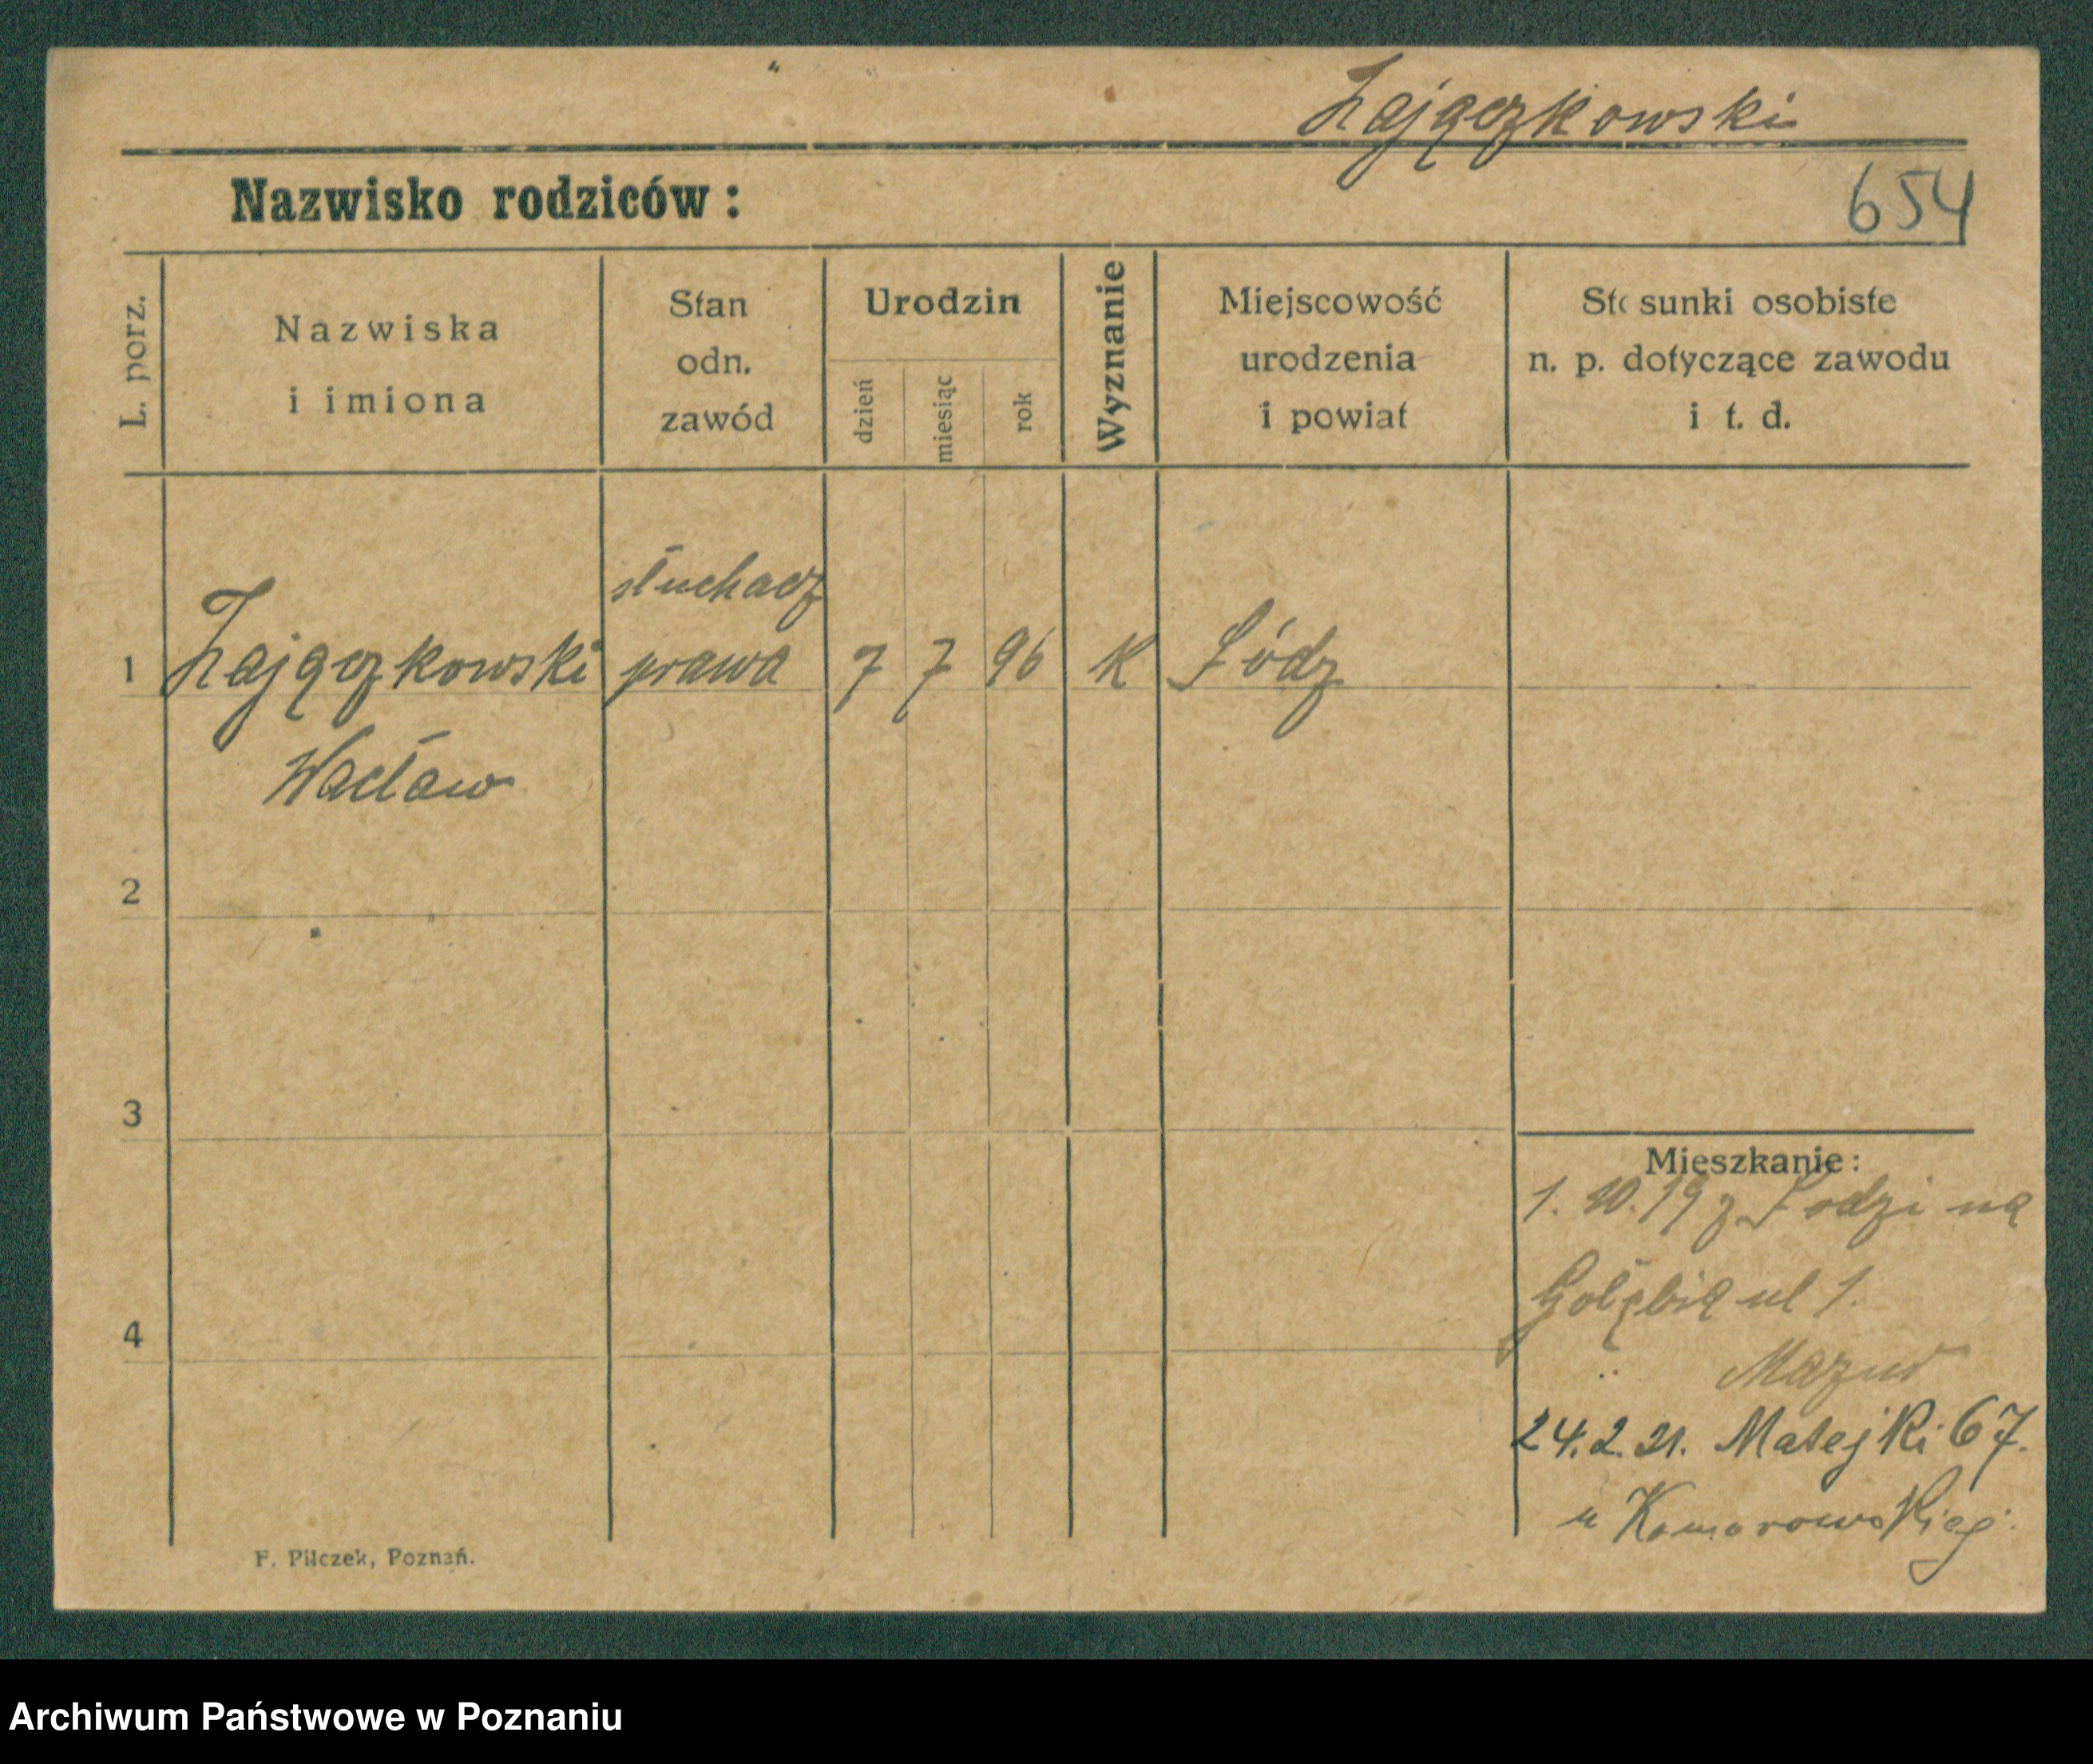 Zajączkowski
Nazwisko rodziców:
654
L. porz.
Nazwiska
i imiona
Stan
odn.
zawód
Urodzin
dzień
miesiąc
rok
Wyznanie
Miejscowość
urodzenia
i powiat
Stosunki osobiste
n. p. dotyczące zawodu
i t. d.
słuchacz
1 Zajączkowski prawa 7 7 96 K Łódz
Wacław
2
3
4
Mieszkanie:
1. 10. 19 z Łodzi na
Gołębią ul 1.
Mazur
24. 2. 21. Matejki 67.
u Komorowskiej.
F. Pilczek, Poznań.
Archiwum Państwowe w Poznaniu